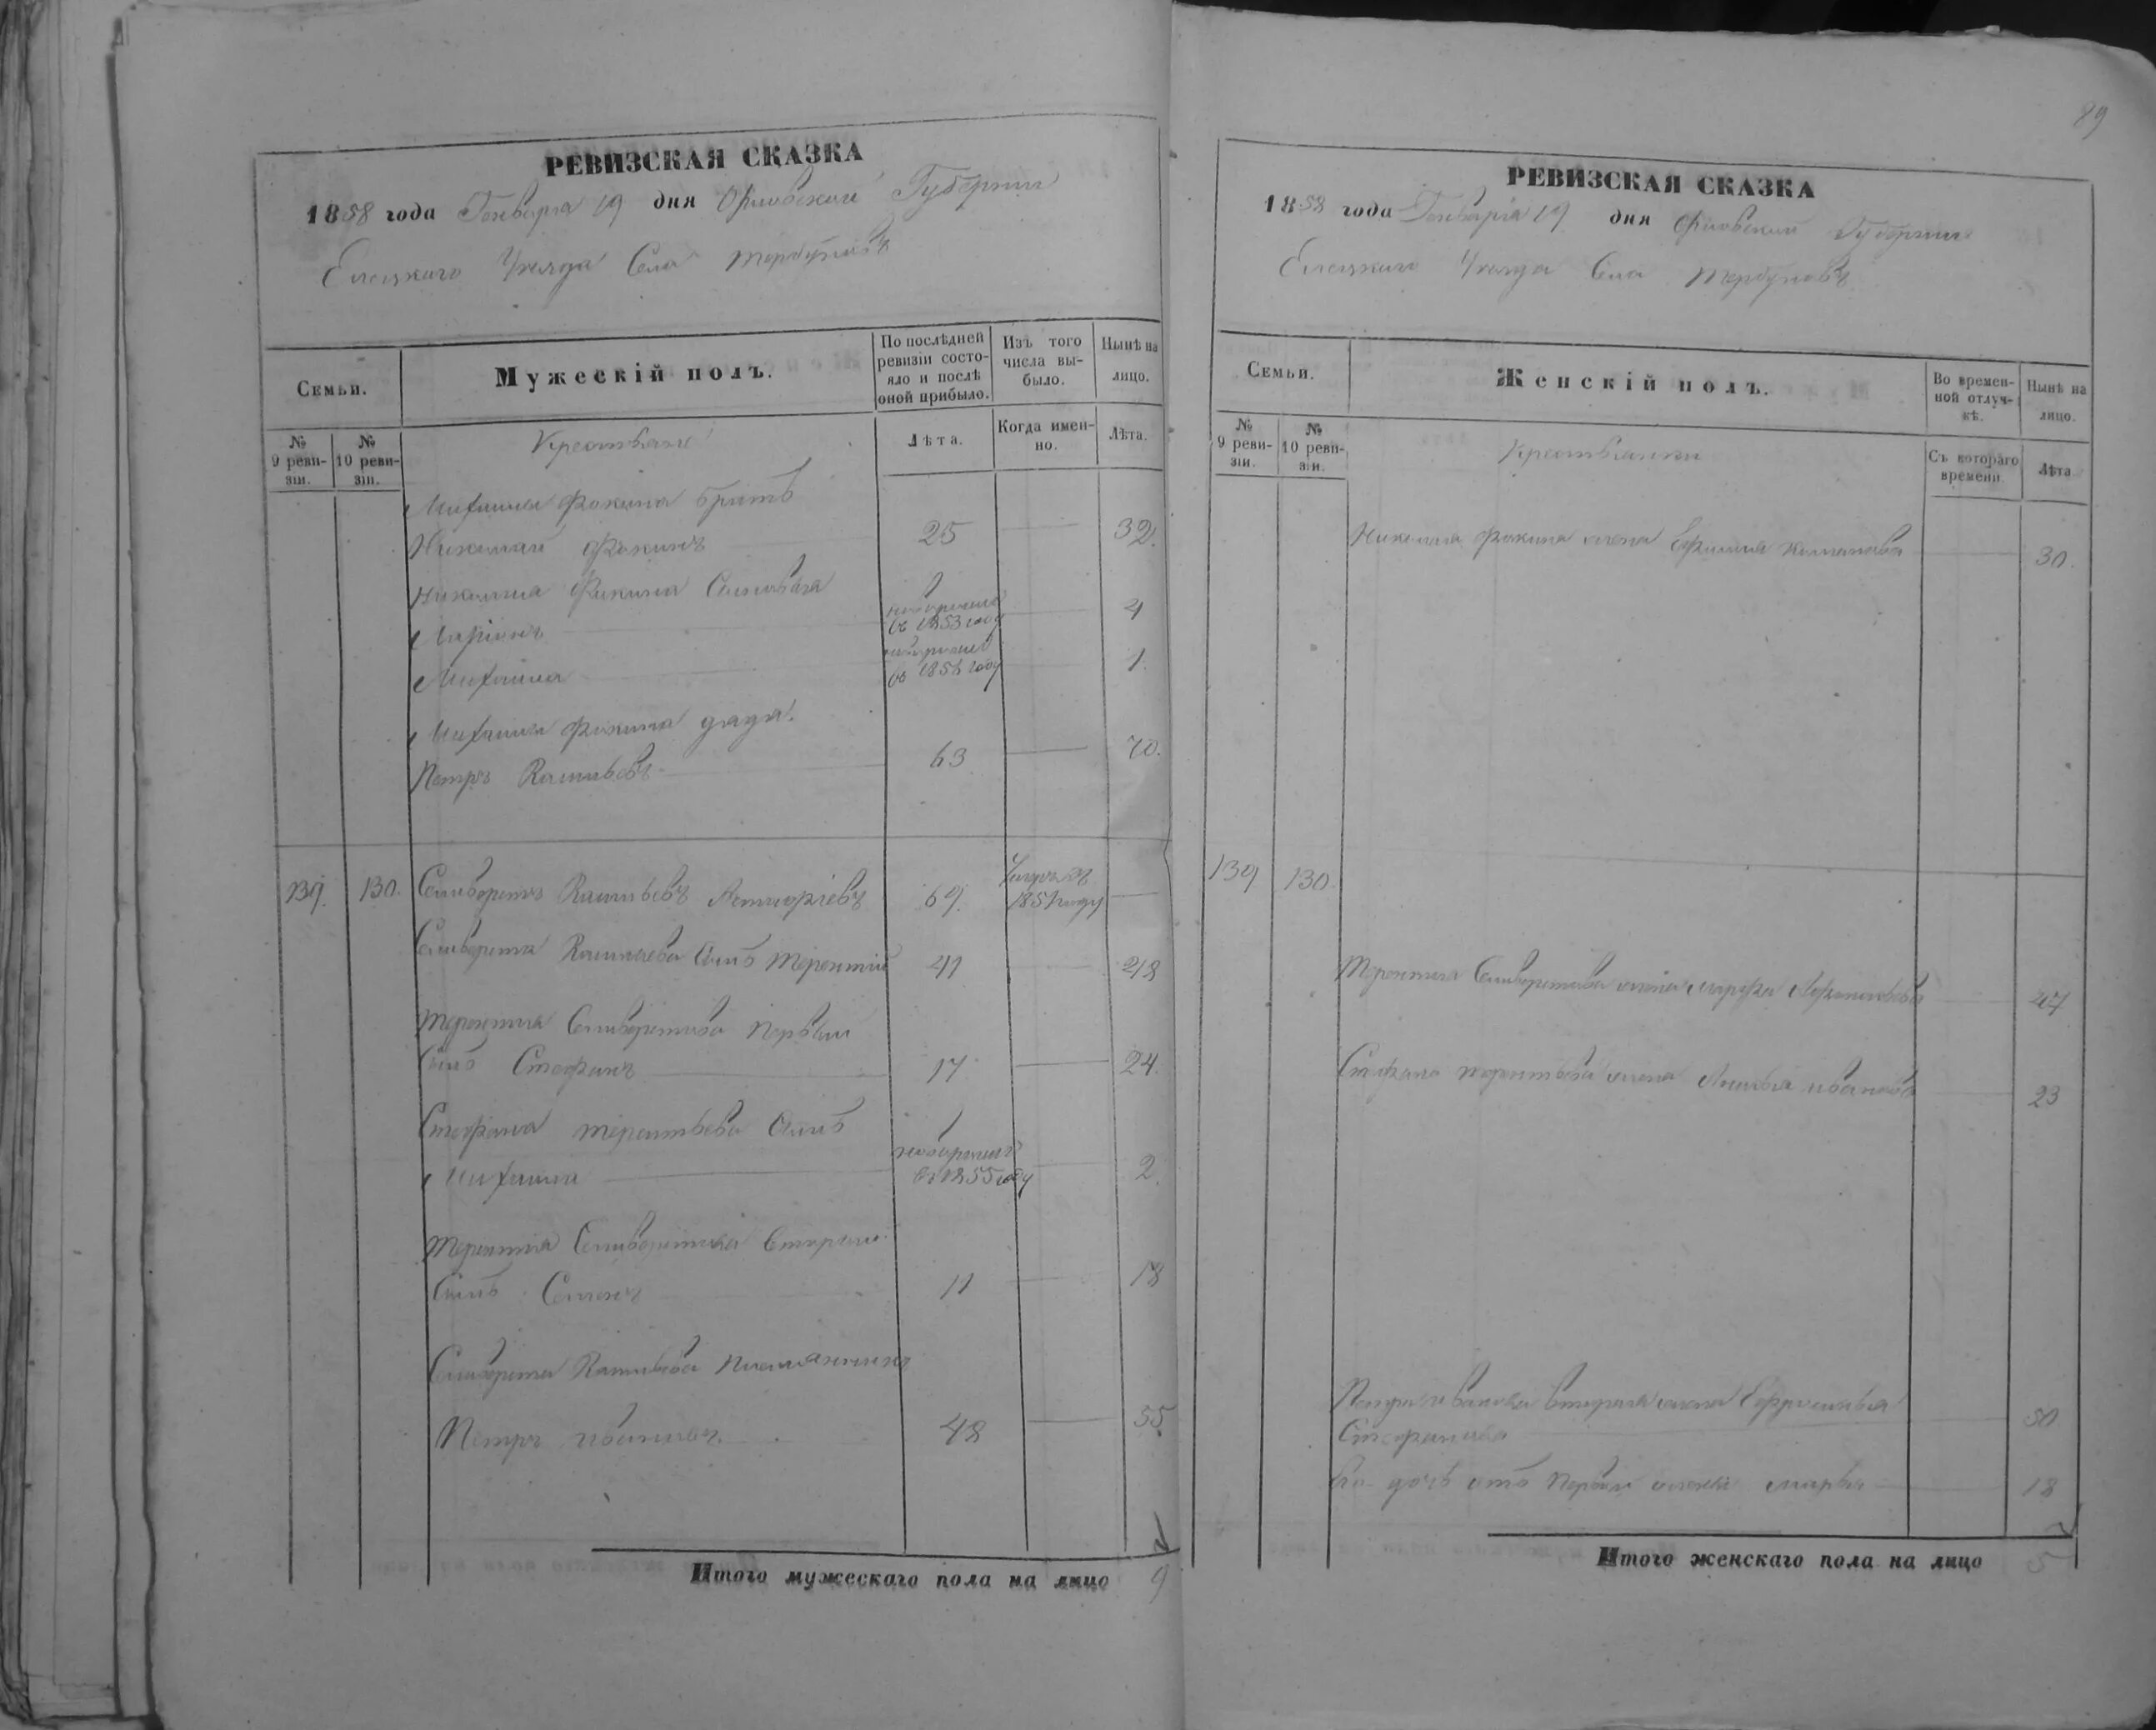 89
РЕВИЗСКАЯ СКАЗКА
1858 года Генваря 19 дня Орловской Губернии
Елецкаго Уезда Села Тербуновъ
Семьи.
Мужескій полъ.
По послѣдней ревизіи состояло и послѣ оной прибыло.
Изъ того числа выбыло.
Нынѣ на лицо.
№ 9 ревизіи.
№ 10 ревизіи.
Крестьяне
Лѣта.
Когда именно.
Лѣта.
Михаила Фокина братъ
Николай Фокинъ 25 32.
Николая Фокина Сыновья
Ларіонъ новорожденъ въ 1853 году 4
Михаила новорожденъ въ 1856 году 1.
Михаила Фокина дядя
Петръ Васильевъ 63 70.
139. 130. Селиверстъ Васильевъ 69. Умеръ въ 1851 году
Селиверста Васильева Сынъ Терентій 41 48
Терентия Селиверстова Первый
Сынъ Стефанъ 17 24.
Стефана Терентьева Сынъ
Михаила новорожденъ въ 1855 году 2.
Терентия Селиверстова Вторый
Сынъ Семенъ 11 18
Селиверста Васильева Племянникъ
Петръ Ивановъ. 48 55.
Итого мужескаго пола на лицо 9
РЕВИЗСКАЯ СКАЗКА
1858 года Генваря 19 дня Орловской Губернии
Елецкаго Уезда Села Тербуновъ
Семьи.
Женскій полъ.
Во временной отлучкѣ.
Нынѣ на лицо.
№ 9 ревизіи.
№ 10 ревизіи.
Крестьянки
Съ котораго времени
Лѣта
Николая Фокина жена 30.
139 130.
Терентия Селиверстова жена Марфа 47
Стефана Терентьева жена Ивановa 23
Петра Иванова вторая жена Ефросинья
Стефанова 50
Его дочь отъ Первой жены Марья 18
Итого женскаго пола на лицо 5